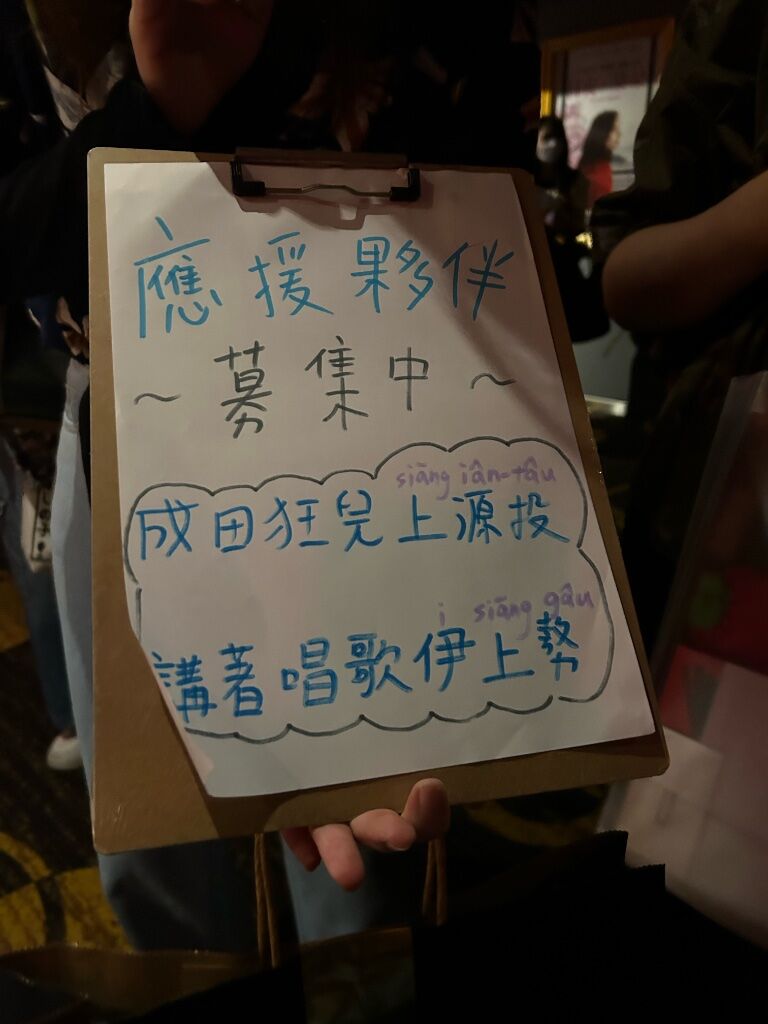 應援夥伴
～募集中～
siāng iân-tâu
成田狂兒上源投
i siāng gâu
講著唱歌伊上勢